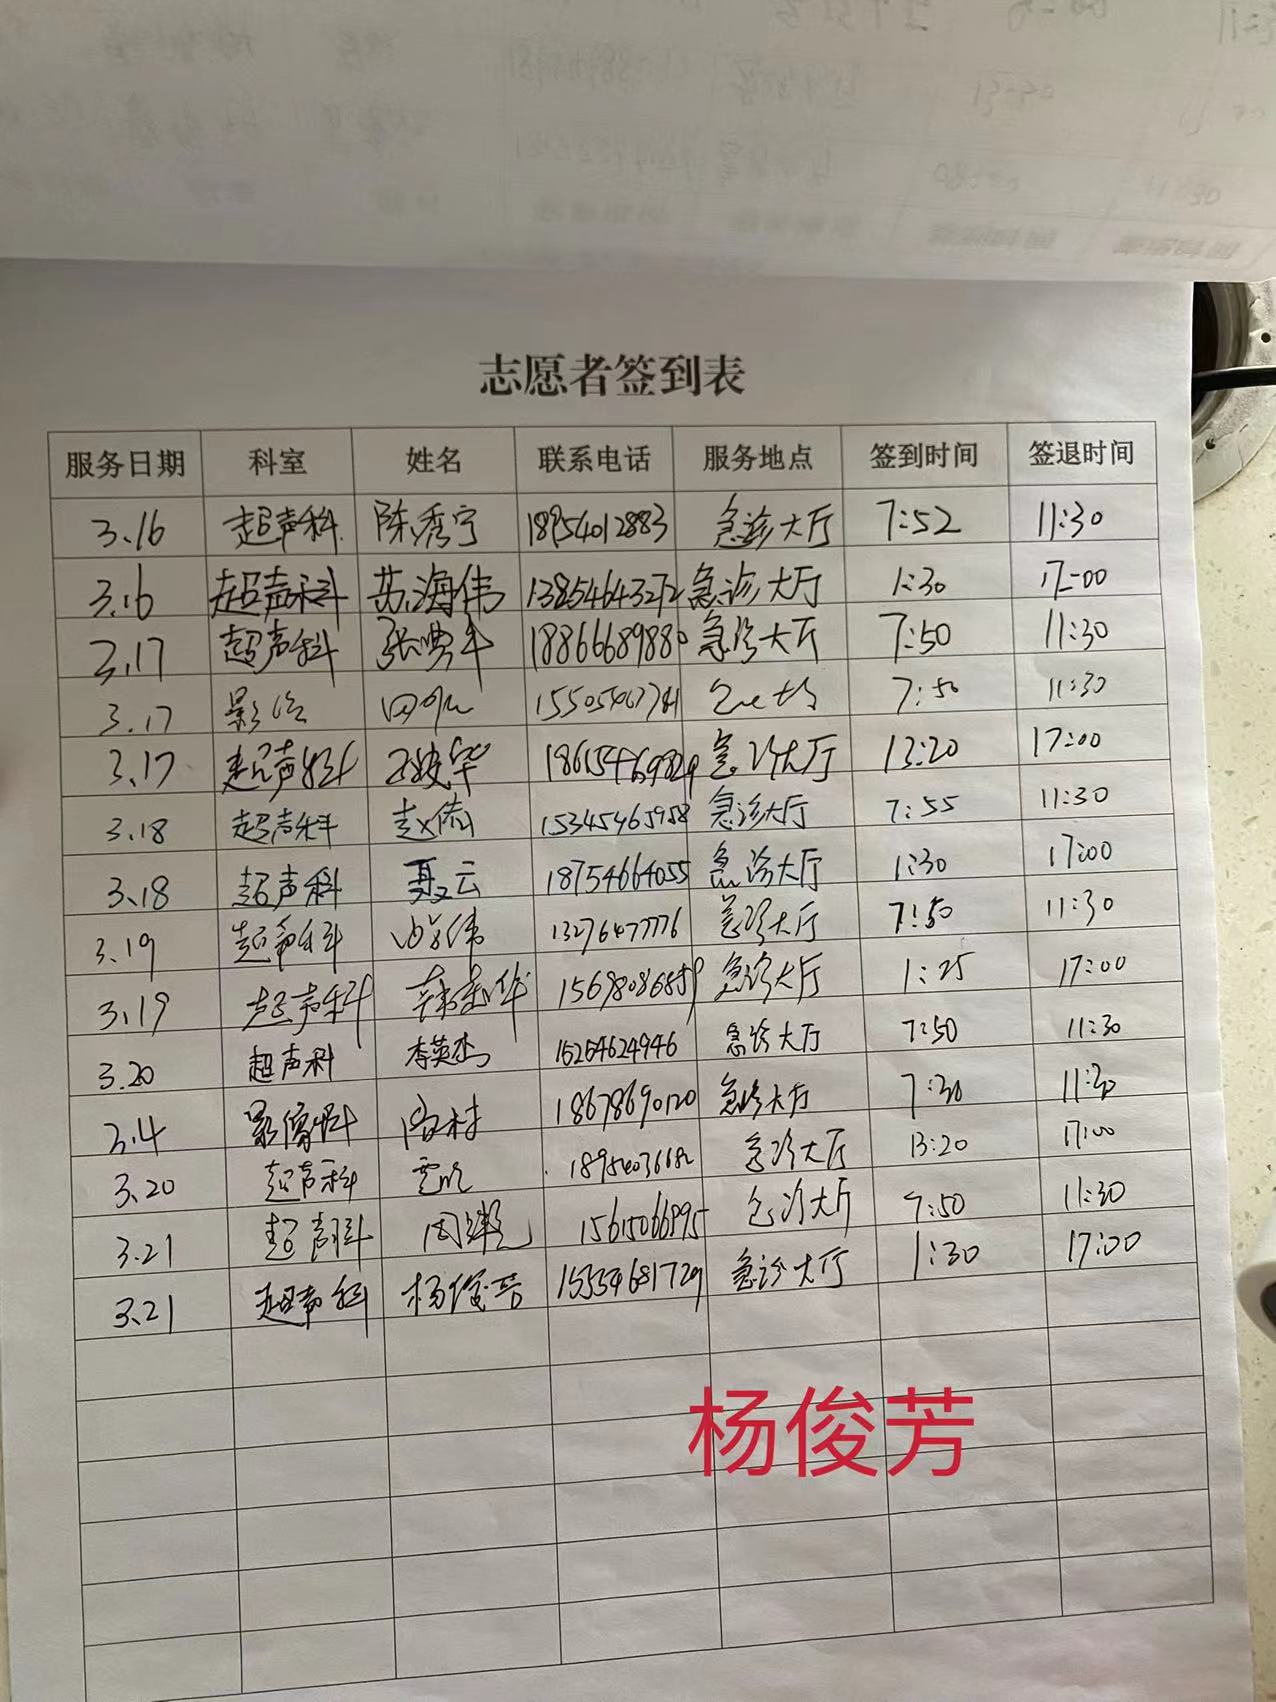 志愿者签到表
服务日期 科室 姓名 联系电话 服务地点 签到时间 签退时间
3.16 超声科 陈秀宁 18954012883 急诊大厅 7:52 11:30
3.16 超声科 苏海伟 13854643272 急诊大厅 1:30 17:00
3.17 超声科 18866689880 急诊大厅 7:50 11:30
3.17 7:50 11:30
3.17 超声科 急诊大厅 13:20 17:00
3.18 超声科 赵倩 15345465958 急诊大厅 7:55 11:30
3.18 超声科 聂云 18754664055 急诊大厅 1:30 17:00
3.19 超声科 13276477776 急诊大厅 7:50 11:30
3.19 超声科 15698086859 急诊大厅 1:25 17:00
3.20 超声科 李英杰 15254624946 急诊大厅 7:50 11:30
3.4 影像科 18678690120 急诊大厅 7:30 11:30
3.20 超声科 急诊大厅 13:20 17:00
3.21 超声科 15615066995 急诊大厅 7:50 11:30
3.21 超声科 杨俊芳 15554681729 急诊大厅 1:30 17:00
杨俊芳